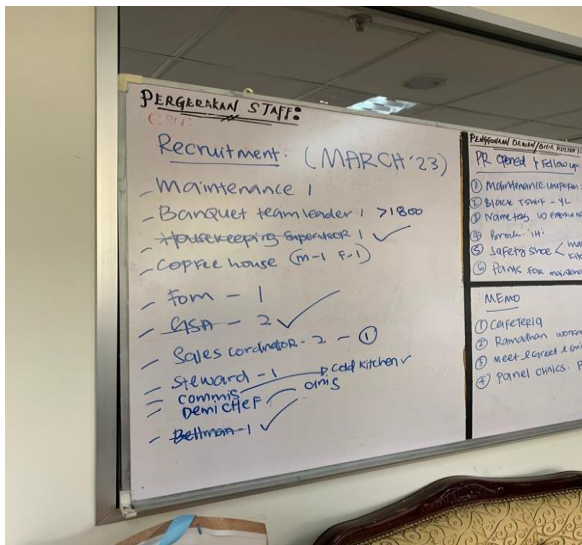 PERGERAKAN STAFF:
Recruitment. (MARCH '23)
- Maintenance 1
- Banquet teamleader 1 >1800
- Housekeeping supervisor 1 ✓
- Coffee house (m-1 F-1)
- Fom - 1
- GSA - 2 ✓
- Sales cordinator - 2 - ①
- Steward - 1
- commis cold kitchen ✓
- Demi CHEF
- Bellman - 1 ✓
PENGGUNAAN DEWAN/BILIK
PR opened & Follow up
① Maintenance uniform
② Black T shirt - 4L
③ Name tag 10
④
⑤ Safety shoe <
⑥ Pants for
MEMO
① CAFETERIA
② Ramadhan
③ Meet & Greet &
④ Panel clinics.